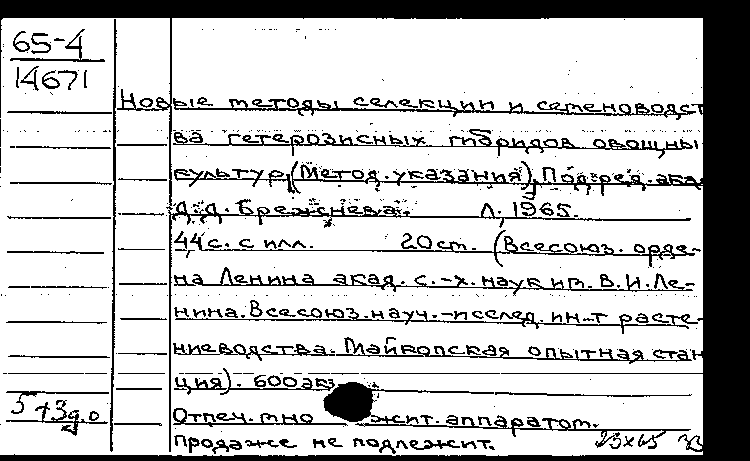 65-4
14671
Новые методы селекции и семеноводст
ва гетерозисных гибридов овощны
культур. (Метод. указания). Под ред. ака
Д.Д. Брежнева. Л., 1965.
44 с. с илл. 20 см. (Всесоюз. орде-
на Ленина акад. с.-х. наук им. В.И. Ле-
нина. Всесоюз. науч.-исслед. ин-т расте-
ниеводства. Майкопская опытная стан
ция). 600 экз.
Отпеч. мно жит. аппаратом.
Продаже не подлежит. 23 X 65